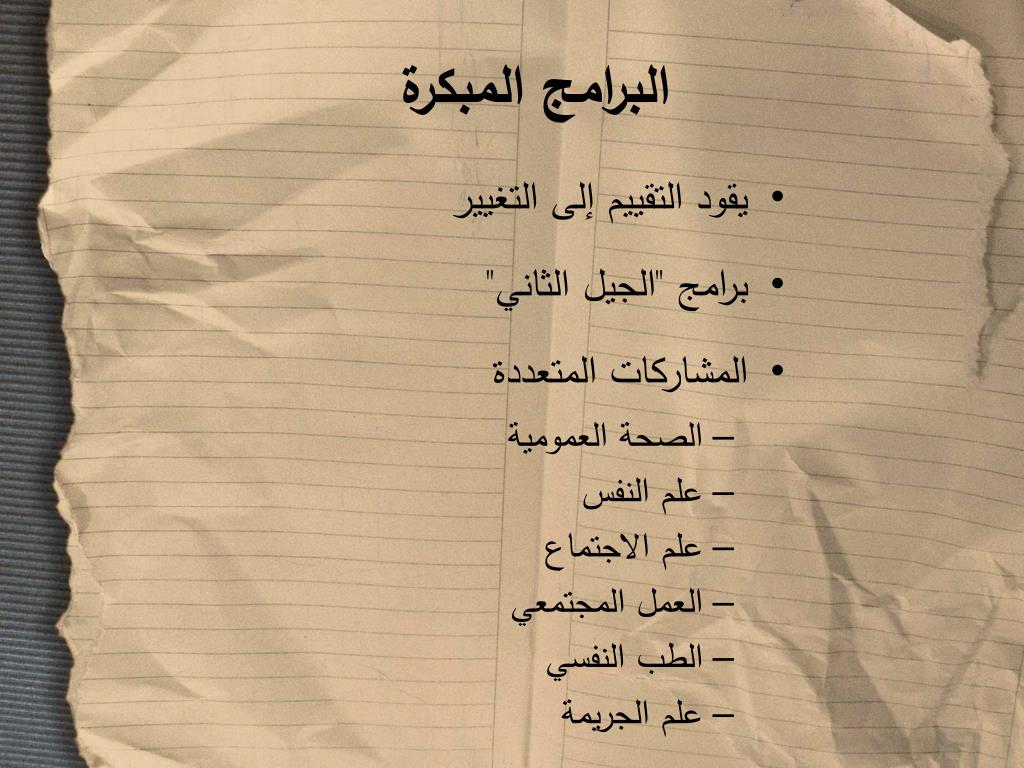 البرامج المبكرة
• يقود التقييم إلى التغيير
• برامج "الجيل الثاني"
• المشاركات المتعددة
– الصحة العمومية
– علم النفس
– علم الاجتماع
– العمل المجتمعي
– الطب النفسي
– علم الجريمة